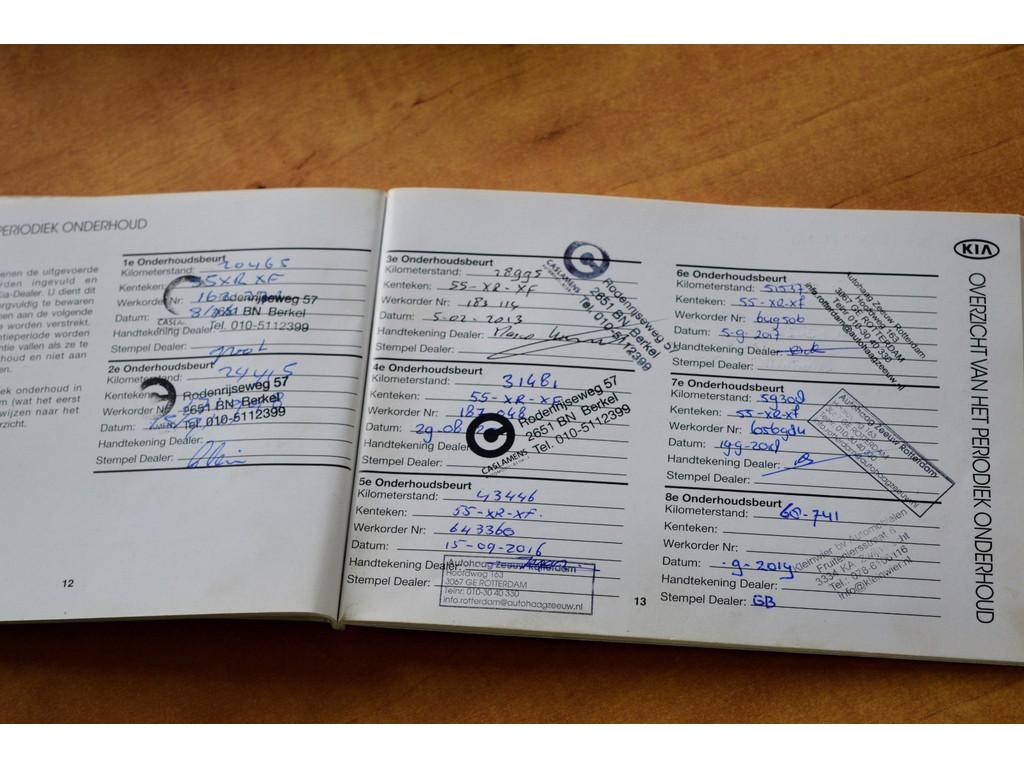 PERIODIEK ONDERHOUD
enen de uitgevoerde
rden ingevuld en
ia-Dealer. U dient dit
rgvuldig te bewaren
en aan de volgende
worden verstrekt.
tieperiode worden
ntie vallen als ze te
houd en niet aan
en.
ek onderhoud in
m (wat het eerst
wijzen naar het
rzicht.
12
1e Onderhoudsbeurt
Kilometerstand: 20465
Kenteken: 55XR XF
Werkorder Nr:
Datum:
Handtekening Dealer:
Stempel Dealer:
Rodenrijseweg 57
2651 BN Berkel
Tel. 010-5112399
2e Onderhoudsbeurt
Kilometerstand: 24415
Kenteken:
Werkorder Nr:
Datum:
Handtekening Dealer:
Stempel Dealer:
Rodenrijseweg 57
2651 BN Berkel
Tel. 010-5112399
3e Onderhoudsbeurt
Kilometerstand: 28995
Kenteken: 55-XR-XF
Werkorder Nr: 183 114
Datum: 5-02-2013
Handtekening Dealer:
Stempel Dealer:
CASLAMENS
Rodenrijseweg 57
2651 BN Berkel
Tel. 010-5112399
4e Onderhoudsbeurt
Kilometerstand: 31481
Kenteken: 55-XR-XF
Werkorder Nr: 187 048
Datum: 29-08
Handtekening Dealer:
Stempel Dealer:
CASLAMENS
Rodenrijseweg 57
2651 BN Berkel
Tel. 010-5112399
5e Onderhoudsbeurt
Kilometerstand: 43446
Kenteken: 55-XR-XF.
Werkorder Nr: 643360
Datum: 15-09-2016
Handtekening Dealer:
Stempel Dealer:
Autohaag Zeeuw Rotterdam
Hoordweg 163
3067 GE ROTTERDAM
Telnr: 010-30 40 330
info.rotterdam@autohaagzeeuw.nl
13
6e Onderhoudsbeurt
Kilometerstand: 51537
Kenteken: 55-XR-XF
Werkorder Nr:
Datum: 5-9-2017
Handtekening Dealer:
Stempel Dealer:
Autohaag Zeeuw Rotterdam
Hoordweg 163
3067 GE ROTTERDAM
Telnr: 010-30 40 330
info.rotterdam@autohaagzeeuw.nl
7e Onderhoudsbeurt
Kilometerstand:
Kenteken: 55-XR-XF
Werkorder Nr:
Datum:
Handtekening Dealer:
Stempel Dealer:
Autohaag Zeeuw Rotterdam
8e Onderhoudsbeurt
Kilometerstand: 60-741
Kenteken:
Werkorder Nr:
Datum: -9-2019
Handtekening Dealer:
Stempel Dealer: GB
KIA
OVERZICHT VAN HET PERIODIEK ONDERHOUD